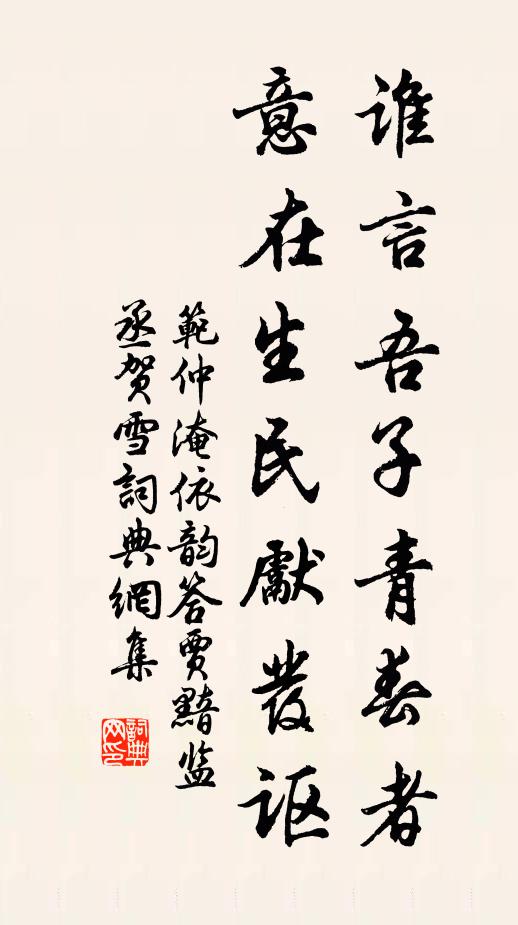 谁言吾子青春者
意在生民獻發讴
範仲淹依韵答贾黯监
丞贺雪詞典網集
詞典
网印